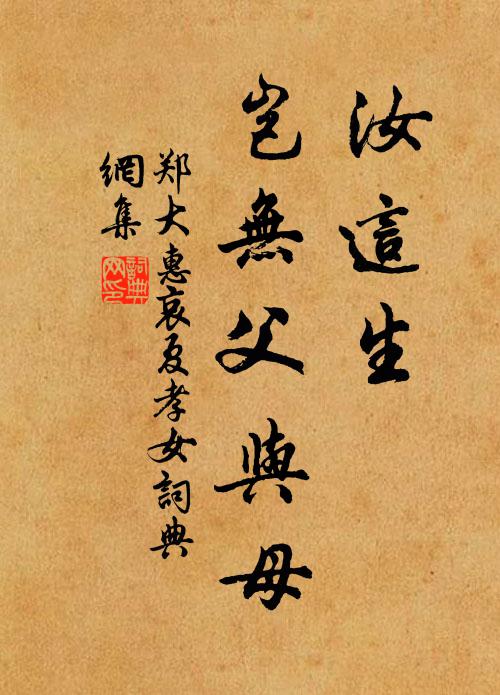 汝這生
豈無父與母
郑大惠哀夏孝女詞典
網集
詞典
网印